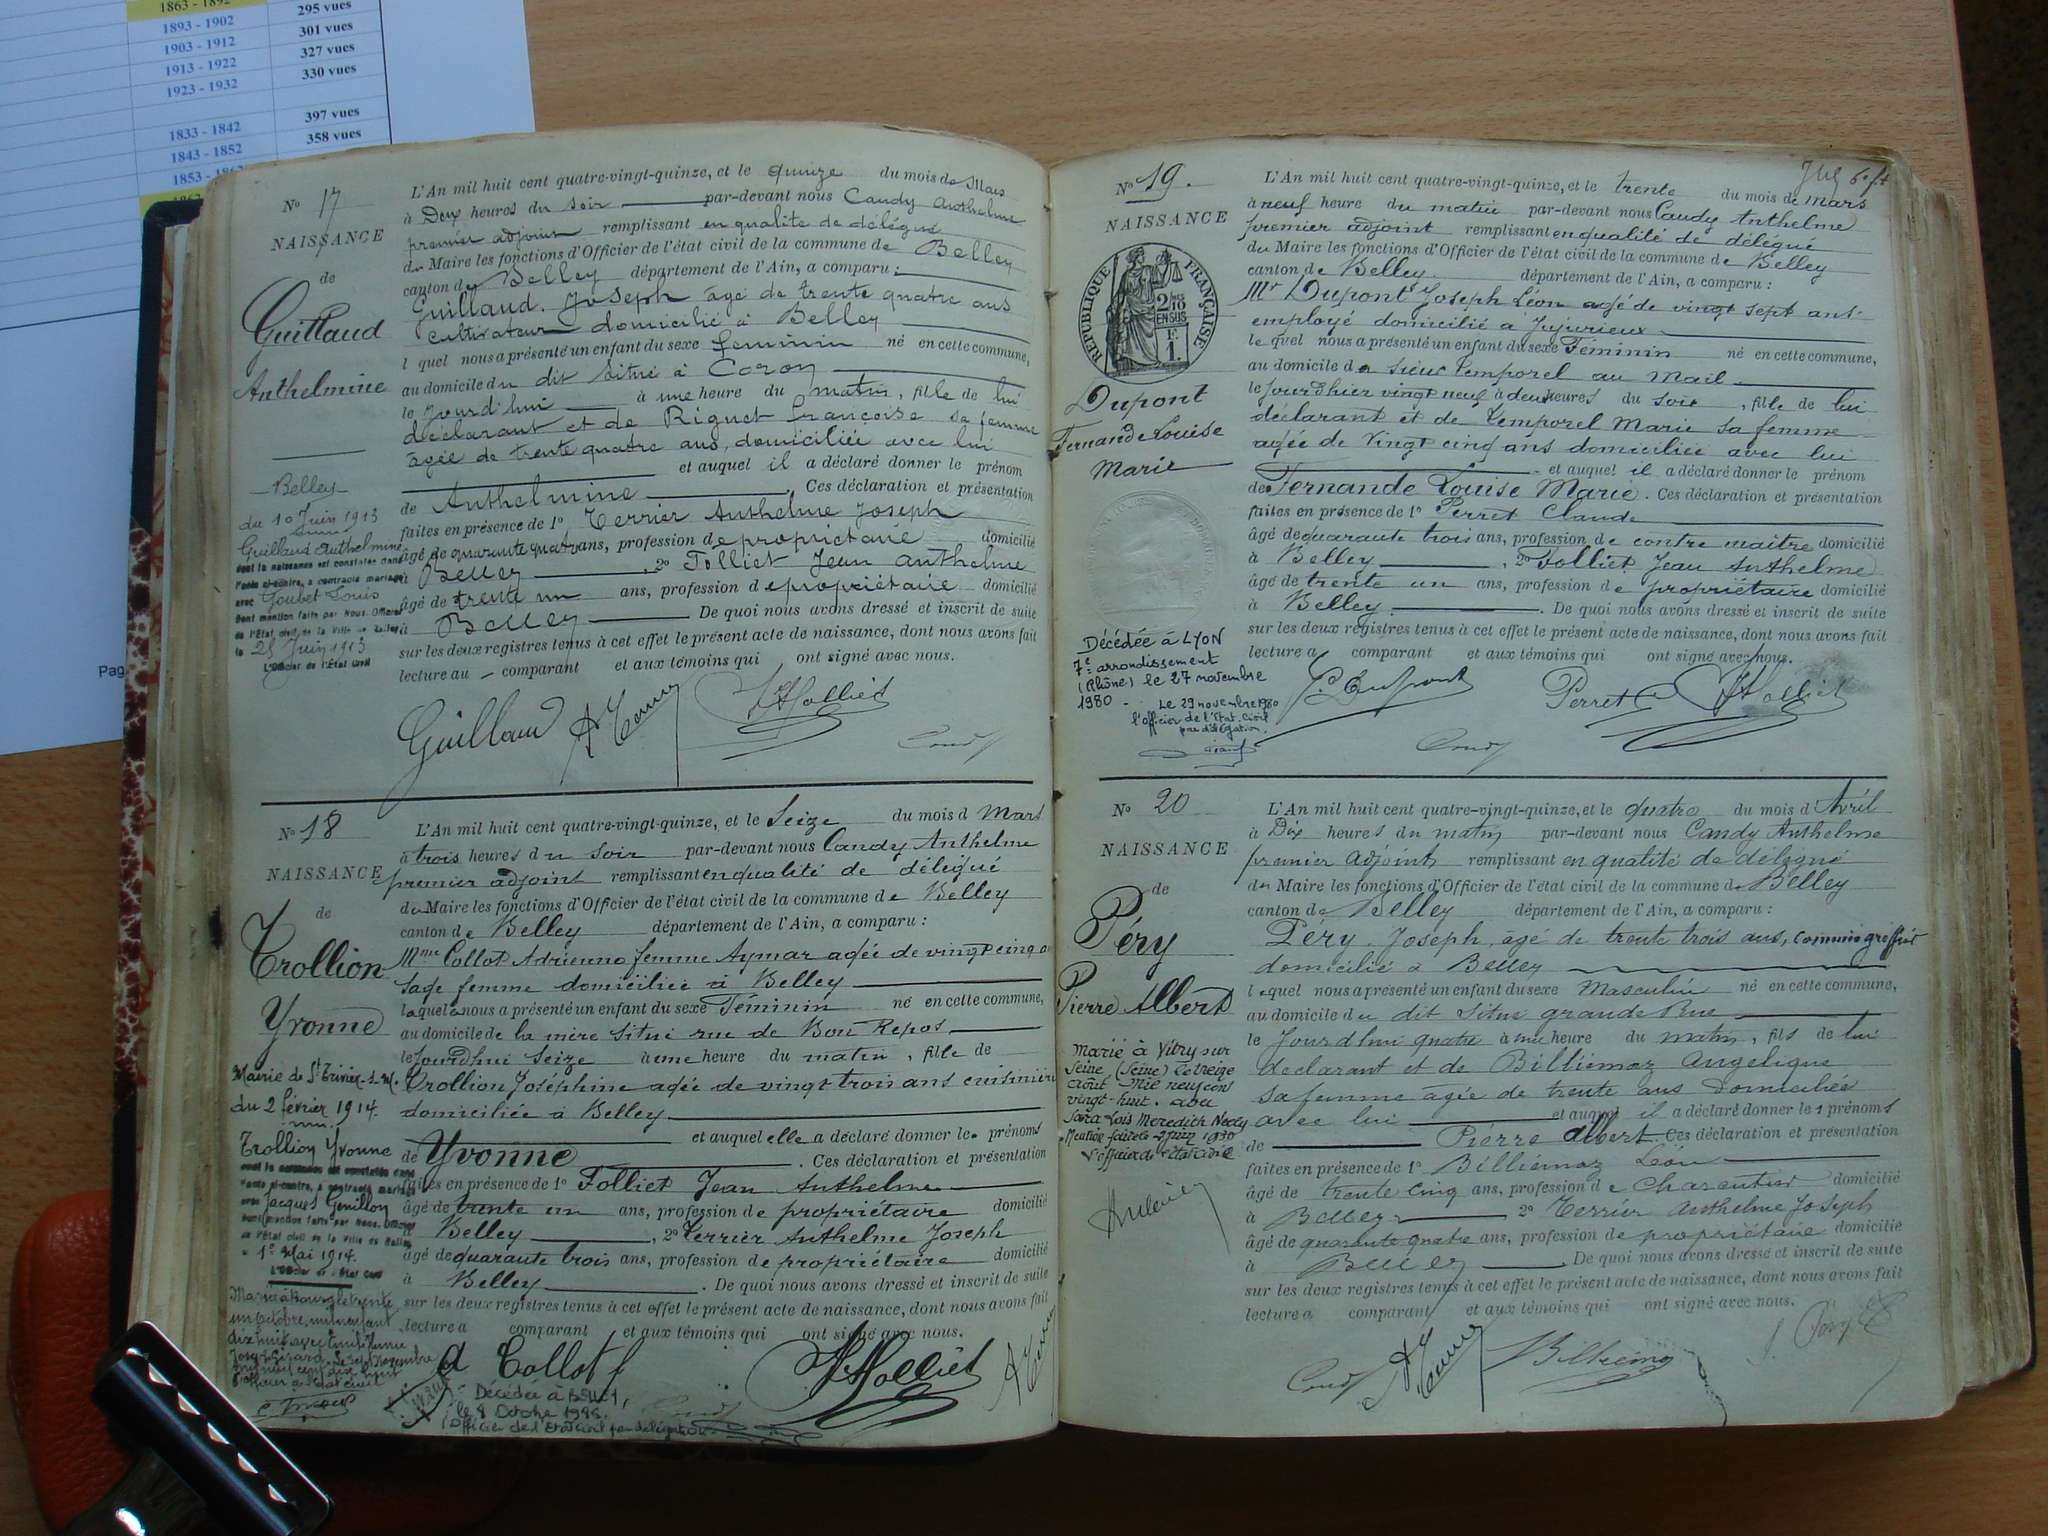 1863 - 1892 295 vues
1893 - 1902 301 vues
1903 - 1912 327 vues
1913 - 1922 330 vues
1923 - 1932
397 vues
1833 - 1842 358 vues
1843 - 1852
1853 - 1862
Pag
No 17
NAISSANCE
de
Guillaud
Anthelmine
Belley
du 10 Juin 1913
Guillaud Anthelmine
dont la naissance est constatée dans
l'acte ci-contre, a contracté mariage
avec Goubet Louis
Dont mention faite par Nous. Officier
de l'Etat civil de la Ville de Belley
le 25 Juin 1913
L'Officier de l'Etat Civil
L'An mil huit cent quatre-vingt-quinze, et le quinze du mois de Mars
à Deux heures du soir par-devant nous Candy Anthelme
premier adjoint remplissant en qualité de délégué
du Maire les fonctions d'Officier de l'état civil de la commune de Belley
canton de Belley département de l'Ain, a comparu :
Guillaud Joseph âgé de trente quatre ans
cultivateur domicilié à Belley
lequel nous a présenté un enfant du sexe feminin né en cette commune,
au domicile du dit situé à Coron
le Jourd'hui à une heure du matin, fille de lui
déclarant et de Riguet françoise sa femme
âgée de trente quatre ans, domiciliée avec lui
et auquel il a déclaré donner le prénom
de Anthelmine. Ces déclaration et présentation
faites en présence de 1o Terrier Anthelme Joseph
âgé de quarante quatre ans, profession de propriétaire domicilié
à Belley, 2o Folliet Jean Anthelme
âgé de trente un ans, profession de propriétaire domicilié
à Belley De quoi nous avons dressé et inscrit de suite
sur les deux registres tenus à cet effet le présent acte de naissance, dont nous avons fait
lecture au comparant et aux témoins qui ont signé avec nous.
Guillaud A Terrier JAFolliet
Candy
No 18
NAISSANCE
de
Trollion
Yvonne
Mairie de St Trivier-s-M.
du 2 février 1914.
Trollion Yvonne
dont la naissance est constatée dans
l'acte ci-contre, a contracté mariage
avec Jacques Genillon
dont mention faite par Nous. Officier
de l'Etat civil de la Ville de Belley
1er Mai 1914.
L'Officier de l'Etat Civil
L'An mil huit cent quatre-vingt-quinze, et le Seize du mois d Mars
à trois heures du soir par-devant nous Candy Anthelme
premier adjoint remplissant en qualité de délégué
du Maire les fonctions d'Officier de l'état civil de la commune de Belley
canton de Belley département de l'Ain, a comparu :
Mme Collot Adrienne femme Aymar agée de vingt cinq a
sage femme domiciliée à Belley
laquelle nous a présenté un enfant du sexe Féminin né en cette commune,
au domicile de la mère situé rue de Bon Repos
le Jourd'hui Seize à une heure du matin, fille de
Trollion Joséphine agée de vingt trois ans cuisinière
domiciliée à Belley
et auquel elle a déclaré donner le prénoms
de Yvonne. Ces déclaration et présentation
faites en présence de 1o Folliet Jean Anthelme
âgé de trente un ans, profession de propriétaire domicilié
Belley, 2o Terrier Anthelme Joseph
âgé de quarante trois ans, profession de propriétaire domicilié
à Belley. De quoi nous avons dressé et inscrit de suite
sur les deux registres tenus à cet effet le présent acte de naissance, dont nous avons fait
lecture a comparant et aux témoins qui ont signé avec nous.
A Collot JAFolliet A Terrier
Décédée à Belley,
le 8 Octobre 1986.
l'Officier de l'Etat Civil par délégation
Candy
No 19.
NAISSANCE
REPUBLIQUE FRANÇAISE
2/10 EN SUS
F. 1.
Dupont
Fernande Louise
Marie
Décédée à LYON
7e arrondissement
(Rhône) le 27 novembre
1980
Le 29 novembre 1980
l'officier de l'Etat-Civil
par délégation.
L'An mil huit cent quatre-vingt-quinze, et le trente du mois de Mars
à neuf heure du matin par-devant nous Candy Anthelme
premier adjoint remplissant en qualité de délégué
du Maire les fonctions d'Officier de l'état civil de la commune de Belley
canton de Belley département de l'Ain, a comparu :
Mr Dupont Joseph Léon agé de vingt sept ans
employé domicilié à Jujurieux
lequel nous a présenté un enfant du sexe Féminin né en cette commune,
au domicile du sieur Temporel au Mail
le Jourdhier vingt neuf à deux heures du soir, fille de lui
déclarant et de Temporel Marie sa femme
agée de Vingt cinq ans domiciliée avec lui
et auquel il a déclaré donner le prénom
des Fernande Louise Marie. Ces déclaration et présentation
faites en présence de 1o Perret Claude
âgé de quarante trois ans, profession de contre maître domicilié
à Belley, 2o Folliet Jean Anthelme
âgé de trente un ans, profession de propriétaire domicilié
à Belley. De quoi nous avons dressé et inscrit de suite
sur les deux registres tenus à cet effet le présent acte de naissance, dont nous avons fait
lecture a comparant et aux témoins qui ont signé avec nous.
Dupont Perret C JAFolliet
Candy
No 20
NAISSANCE
de
Péry
Pierre Albert
Marié à Vitry sur
Seine, (Seine) le treize
août Mil neuf cent
vingt-huit. avec
Sara Lois Meredith Neely
Mention faite le 2 Juin 1930
L'officier de l'état civil
L'An mil huit cent quatre-vingt-quinze, et le quatre du mois d Avril
à Dix heures du matin par-devant nous Candy Anthelme
premier adjoint remplissant en qualité de délégué
du Maire les fonctions d'Officier de l'état civil de la commune de Belley
canton de Belley département de l'Ain, a comparu :
Péry Joseph, âgé de trente trois ans, commis greffier
domicilié à Belley
lequel nous a présenté un enfant du sexe Masculin né en cette commune,
au domicile du dit situé grande Rue
le Jourd'hui quatre à une heure du matin, fils de lui
declarant et de Billiémaz Angelique
sa femme âgée de trente ans Domiciliée
avec lui et auquel il a déclaré donner le s prénoms
de Pierre Albert. Ces déclaration et présentation
faites en présence de 1o Billiémaz Léon
âgé de trente cinq ans, profession de Charpentier domicilié
à Belley 2o Terrier Anthelme Joseph
âgé de quarante quatre ans, profession de propriétaire domicilié
à Belley. De quoi nous avons dressé et inscrit de suite
sur les deux registres tenus à cet effet le présent acte de naissance, dont nous avons fait
lecture a comparant et aux témoins qui ont signé avec nous.
J. Péry
Candy A Terrier Billiémaz